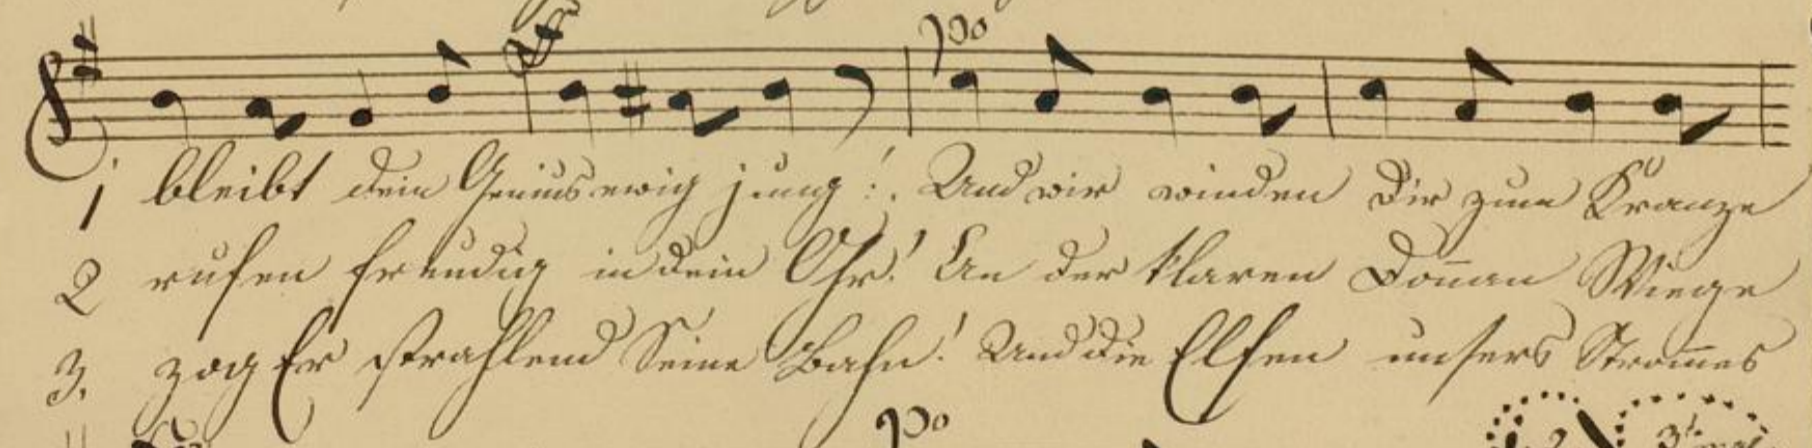 po
1 bleibt dein Genius ewig jung! Und wir winden Dir zum Kranze
2 rufen freudig in dein Ohr! An der klaren Donau Wiege
3. zog Er strahlend Seine Bahn! Und die Elfen unsers Stromes
po